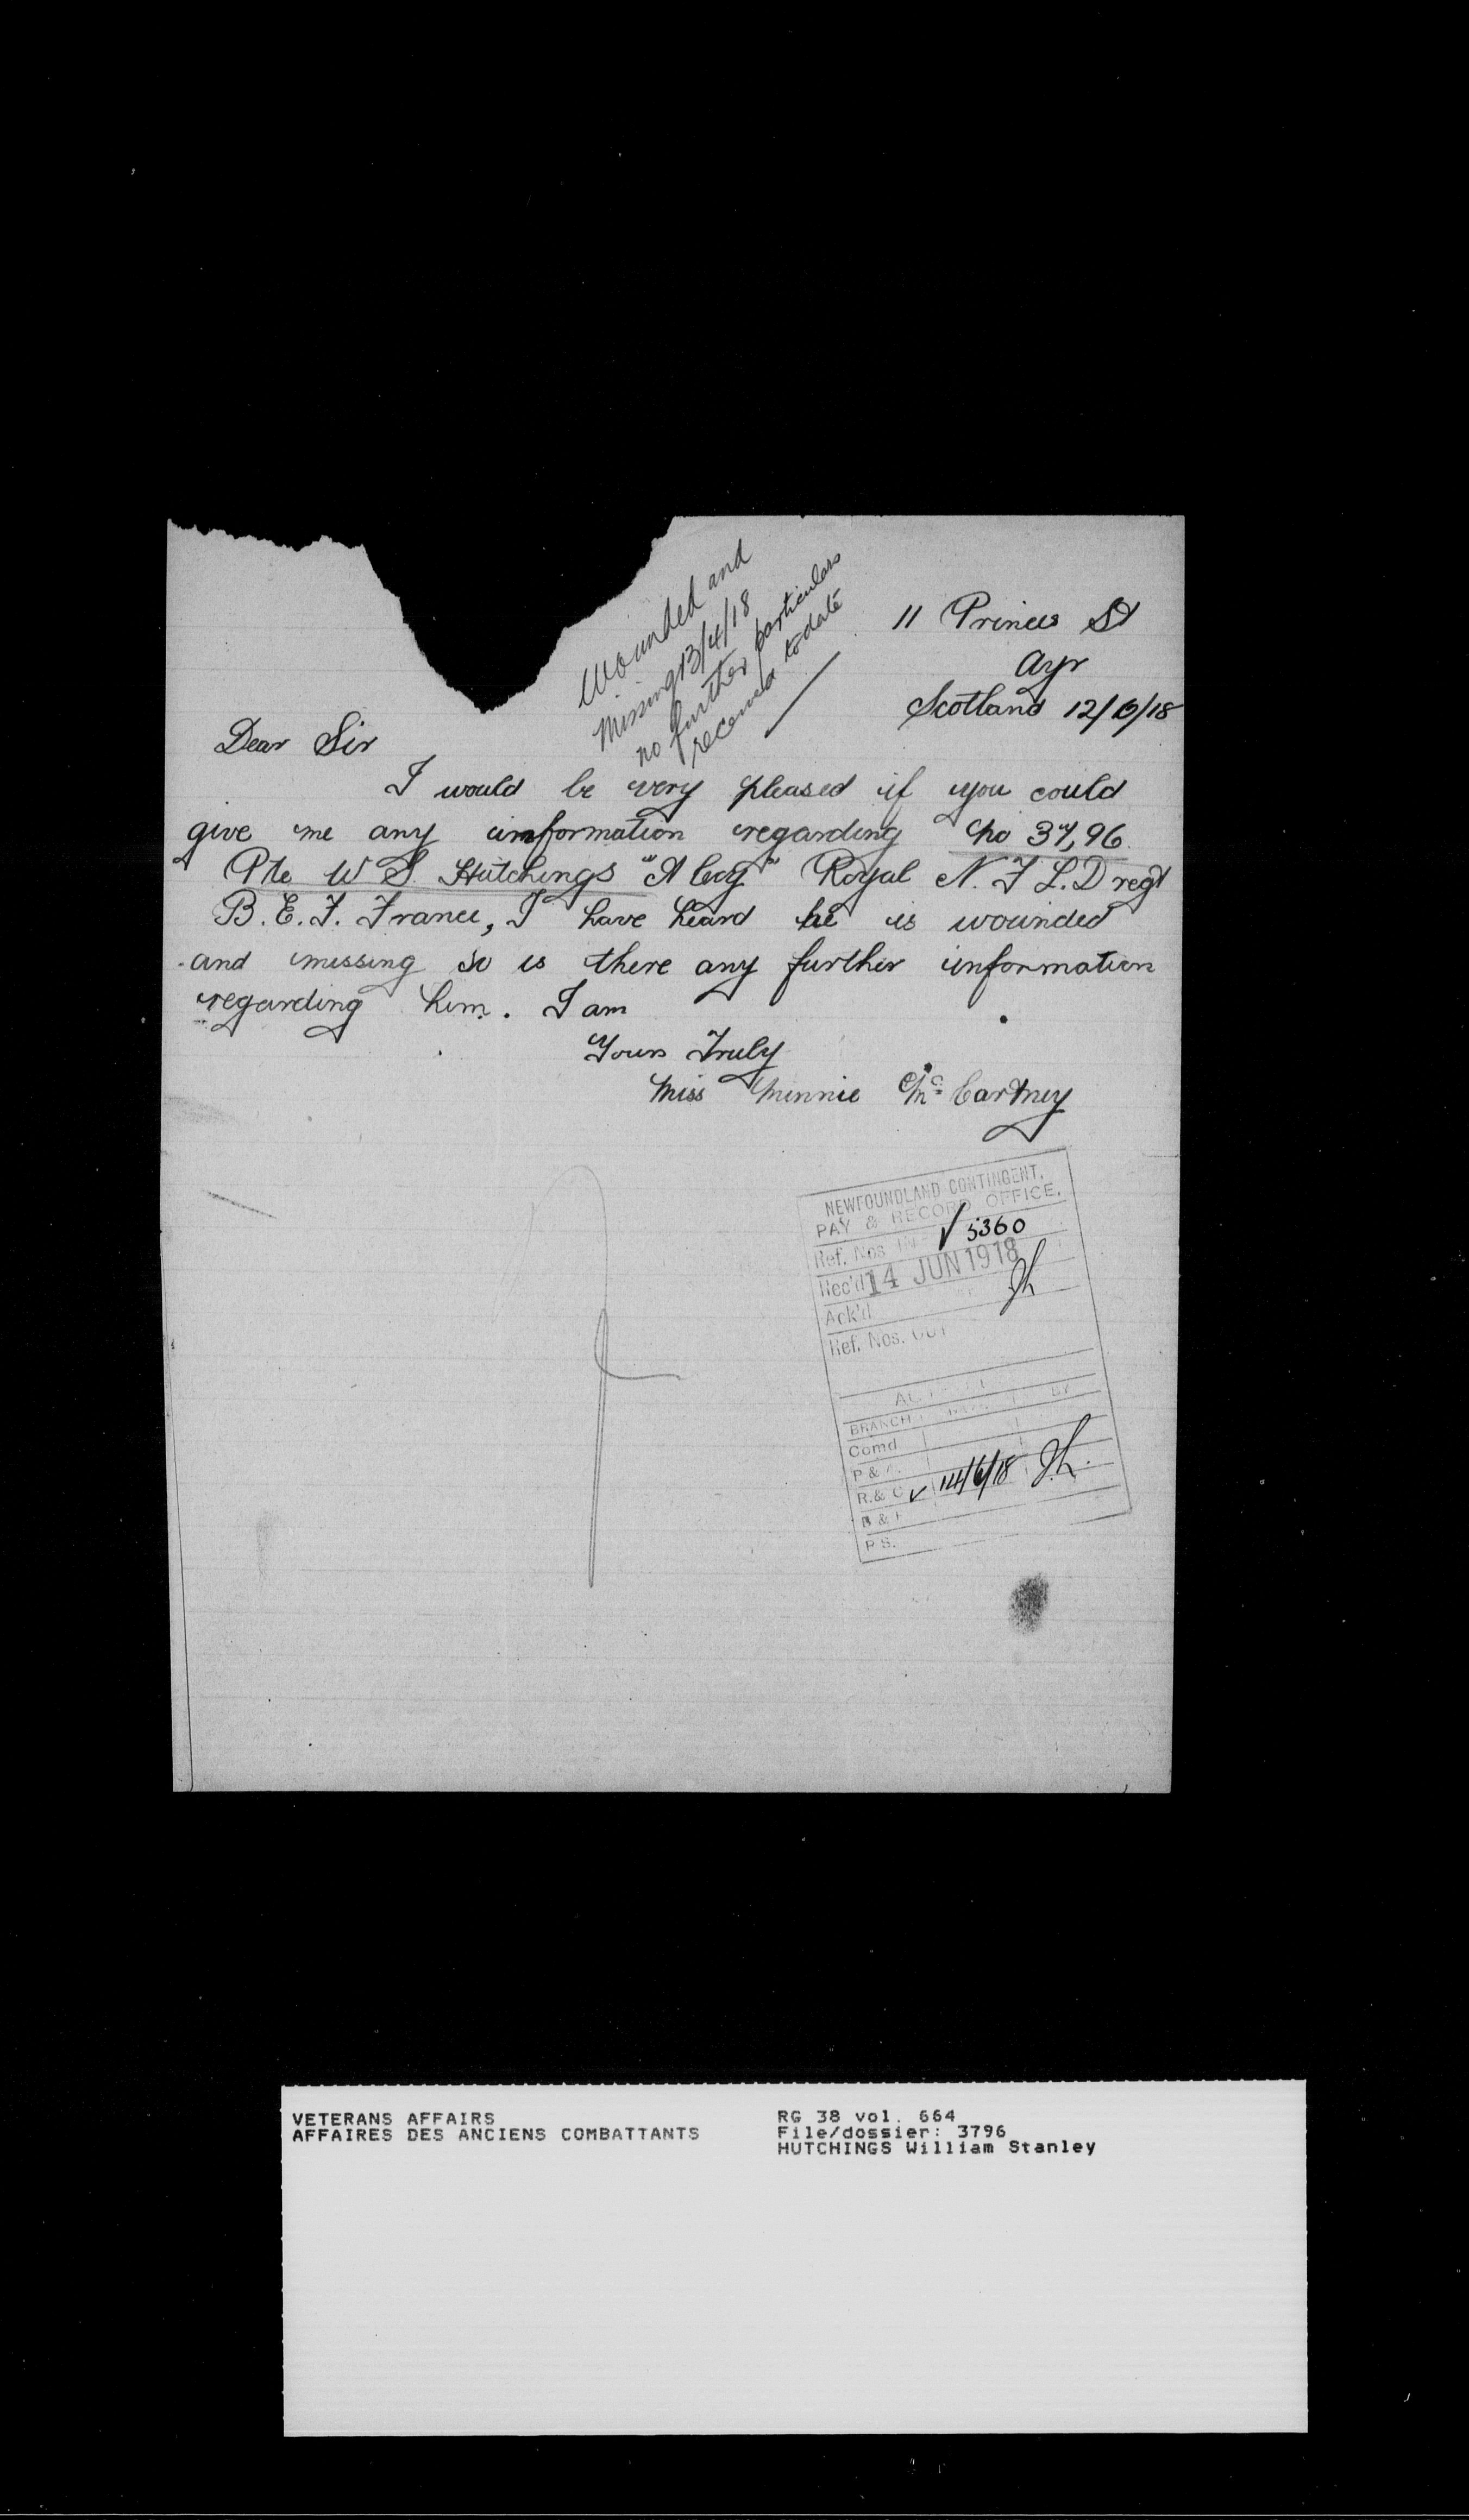 Wounded and
Missing 13/4/18
no further particulars
received to date
11 Princes St
Ayr
Scotland 12/6/18
Dear Sir
I would be very pleased if you could
give me any imformation regarding No 37,96
Pte W S. Hutchings "A Coy" Royal N. F L. D regt
B. E. F. France, I have heard he is wounded
and missing so is there any further information
regarding him. I am
Yours Truly
Miss Minnie McCartney
NEWFOUNDLAND CONTINGENT.
PAY & RECORD OFFICE.
Ref. Nos IN 5360
Rec'd 14 JUN 1918
Ack'd
Ref. Nos. OUT
BRANCH BY
Comd
P &
R. & 14/6/18
P S.
VETERANS AFFAIRS
AFFAIRES DES ANCIENS COMBATTANTS
RG 38 vol. 664
File/dossier: 3796
HUTCHINGS William Stanley